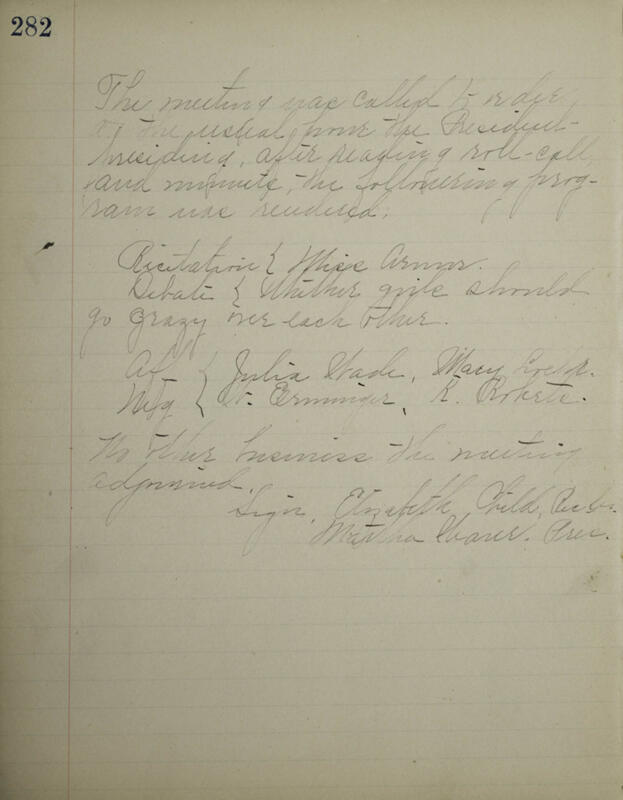 282
The meeting was called to order
at the usual hour the President
presiding, after reading roll-call,
and minuets, the following prog-
ram was rendered:
Recitation { Miss Armor.
Debate { Whether girls should
go crazy over each other.
Af { Julia Wade, Macy
Neg { V. Erminger, K. Roberts.
No other business the meeting
adjourned.
Sign. Elizabeth Child,
Martha Pres.